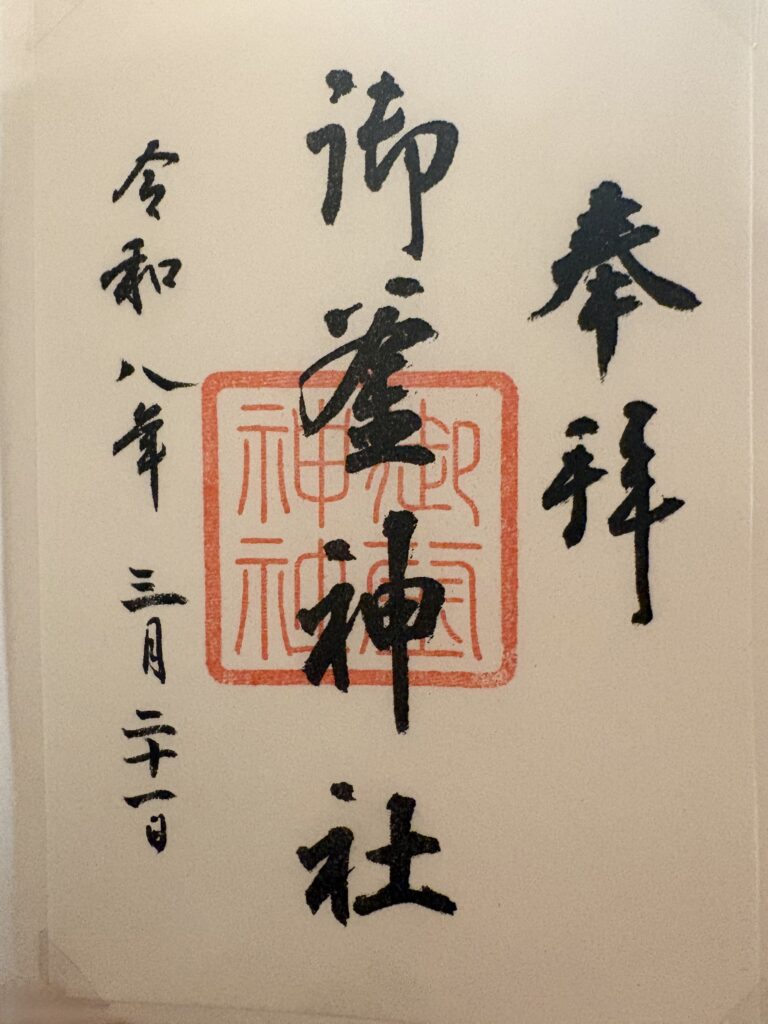 奉拝
御釜神社
令和八年 三月二十一日
御釜
神社